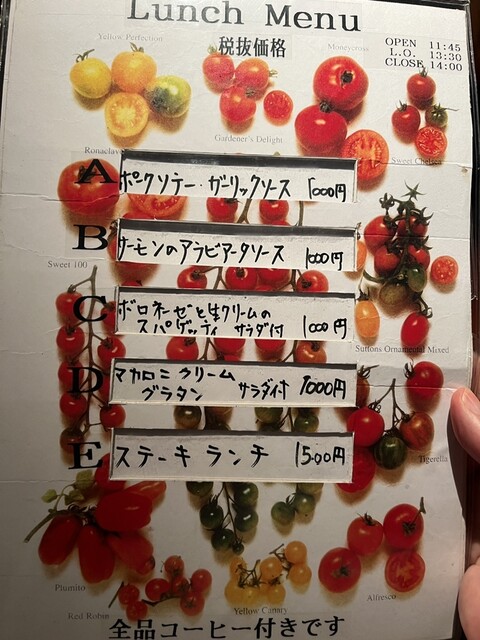 Lunch Menu
税抜価格
OPEN 11:45
L.O. 13:30
CLOSE 14:00
Yellow Perfection
Moneycross
Gardener's Delight
Ronaclave
Sweet Chelsea
A ポークソテー・ガーリックソース 1000円
B サーモンのアラビアータソース 1000円
Sweet 100
C ボロネーゼと生クリームの
スパゲッティ サラダ付 1000円
Suttons Ornamental Mixed
D マカロニクリーム
グラタン サラダ付 1000円
E ステーキランチ 1500円
Tigerella
Plumito
Red Robin
Yellow Canary
Alfresco
全品コーヒー付きです